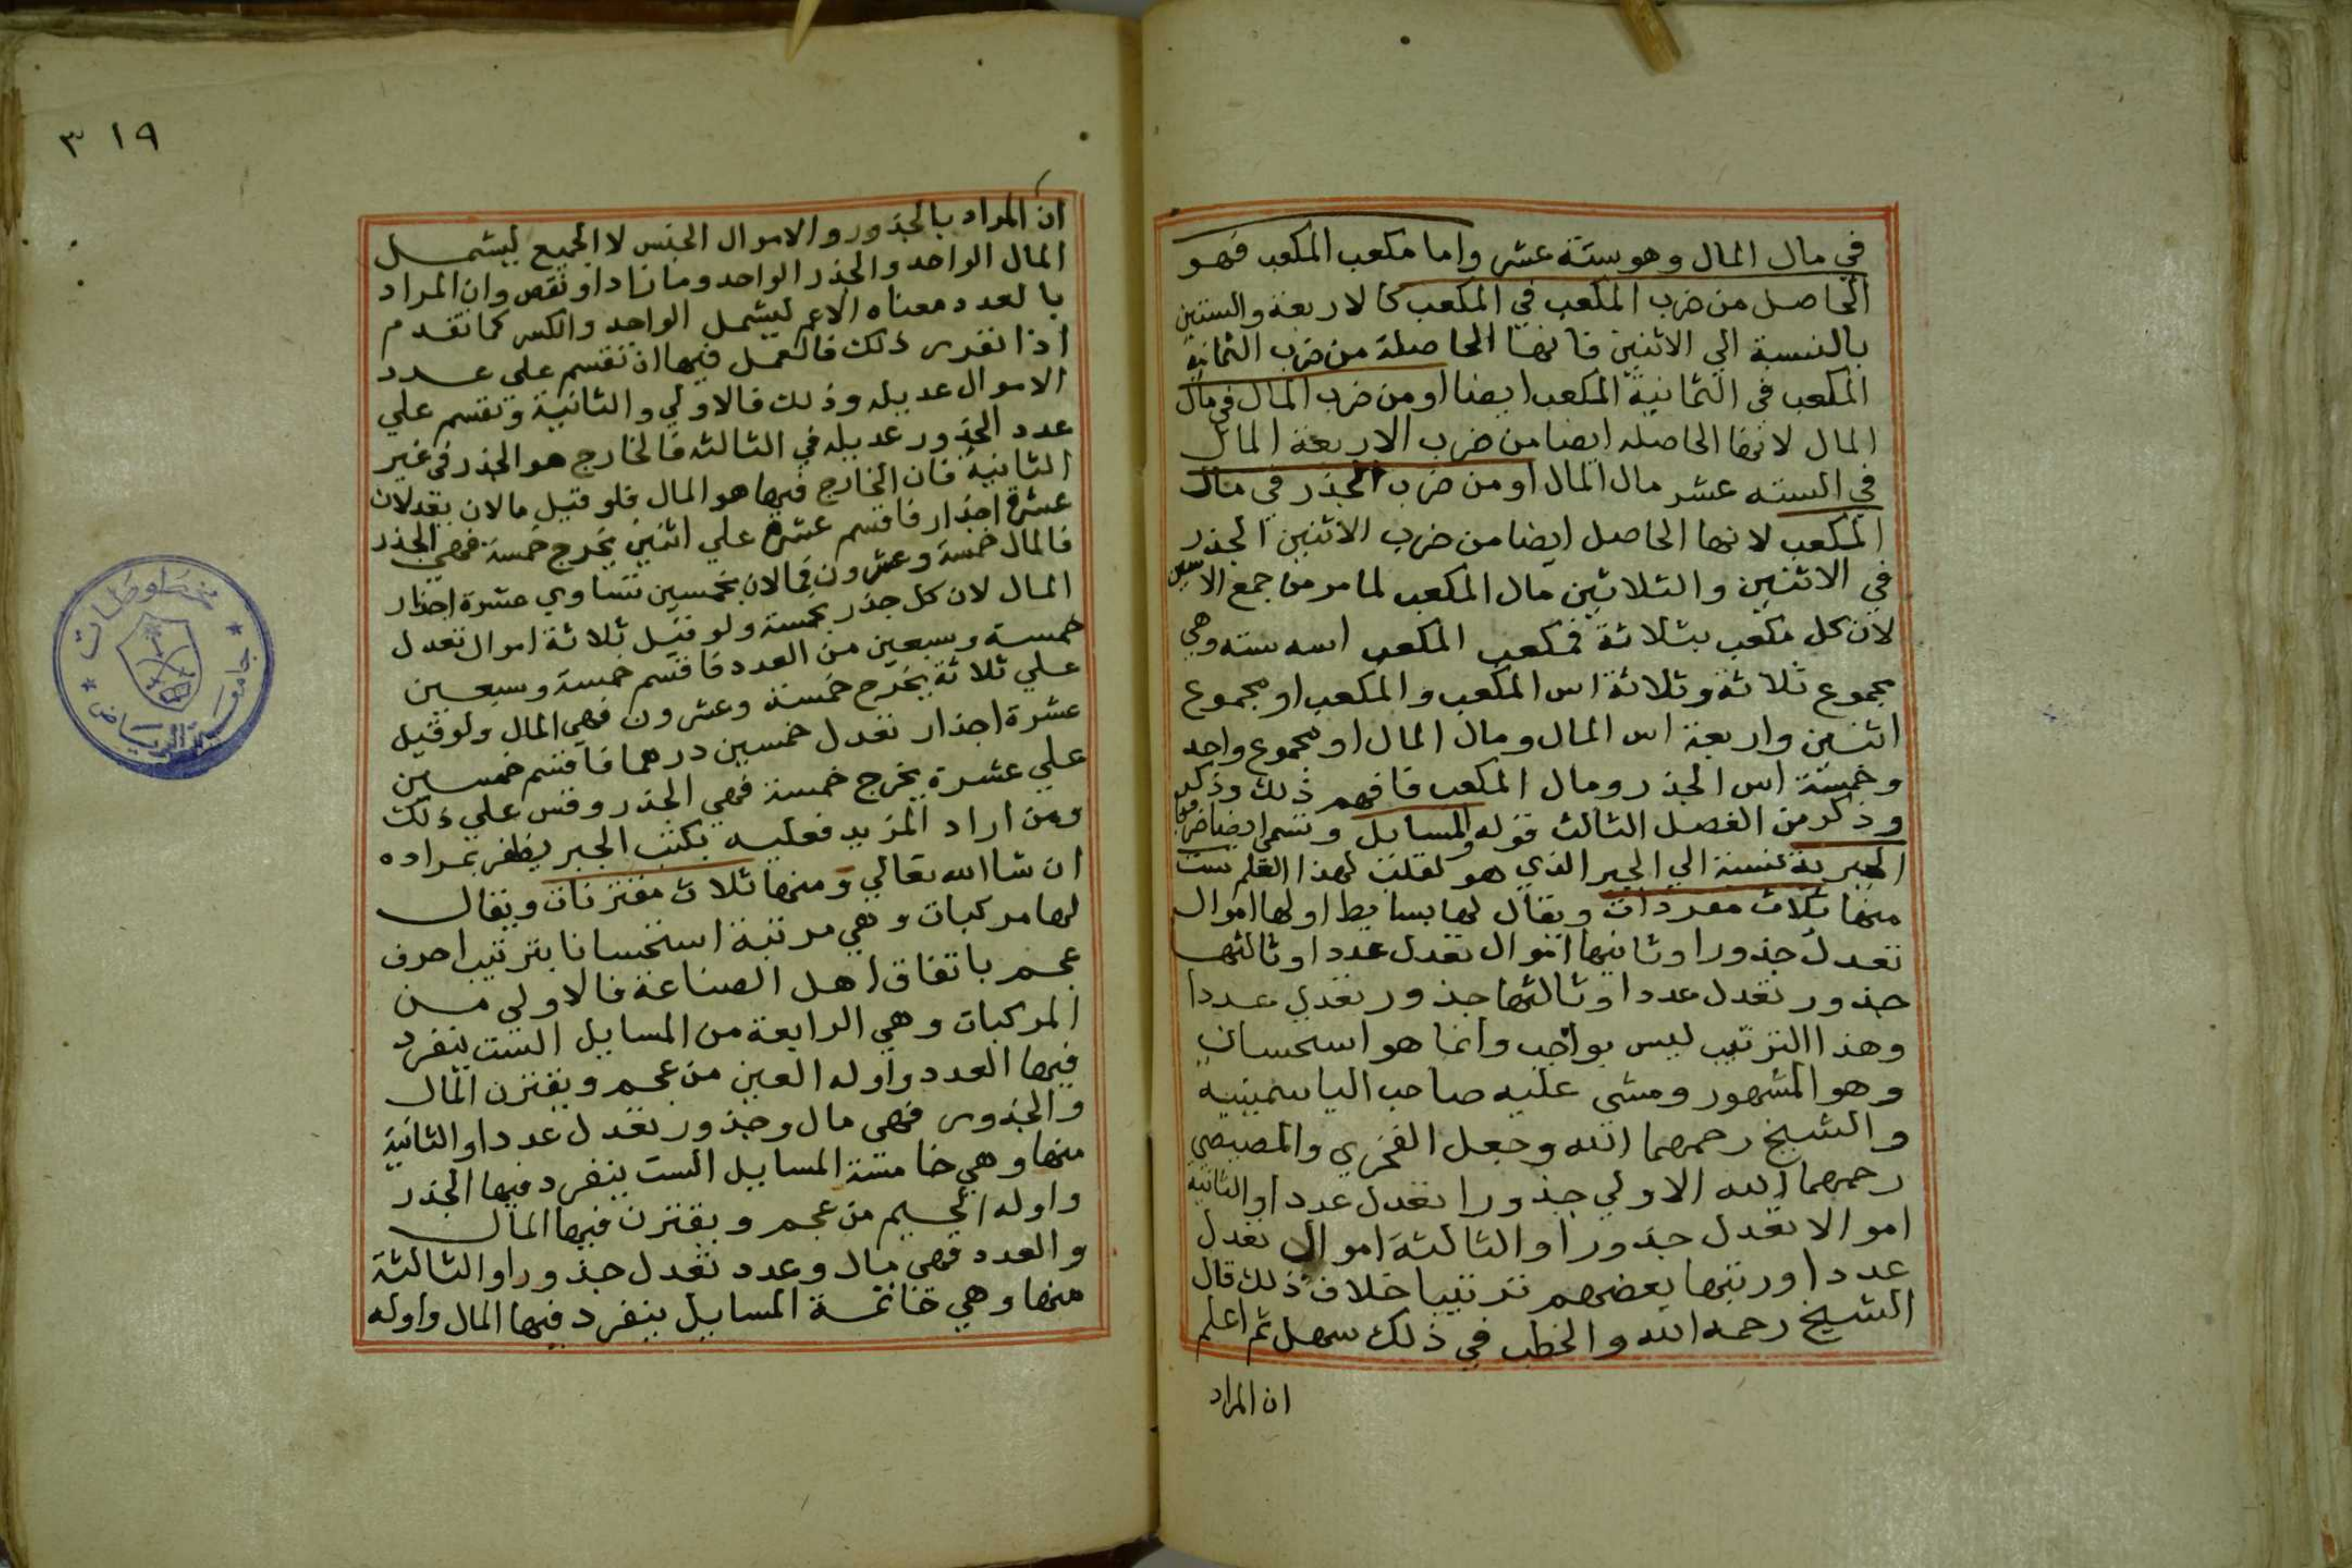 في مال المال وهو ستة عشر واما مكعب المكعب فهو
الحاصل من ضرب المكعب في المكعب كالاربعة والستين
بالنسبة الي الاثنين فانها الحاصلة من ضرب الثمانية
المكعب في الثمانية المكعب ايضا او من ضرب المال في مال
المال لانها الحاصله ايضا من ضرب الاربعة المال
في السته عشر مال المال او من ضرب الجذر في مال
المكعب لانها الحاصل ايضا من ضرب الاثنين الجذر
في الاثنين والثلاثين مال المكعب لما مر من جمع الاسس
لان كل مكعب بثلاثة فمكعب المكعب اسه سته وهي
مجموع ثلاثة وثلاثة اس المكعب والمكعب او مجموع
اثنين واربعة اس المال ومال المال او مجموع واحد
وخمسة اس الجذر ومال المكعب فافهم ذلك وذكر
وذكر من الفصل الثالث قوله والمسايل وتسمي ايضا
الجبرية نسبة الي الجبر الذي هو لهذا العلم ست
منها ثلاث مفردات ويقال لها بسايط اولها اموال
تعدل جذورا وثانيها اموال تعدل عددا وثالثها
جذور تعدل عددا وثالثها جذور تعدل عددا
وهذا الترتيب ليس بواجب وانما هو استحسان
وهو المشهور ومشي عليه صاحب الياسمينية
والشيخ رحمهما الله وجعل الفخري والمصيصي
رحمهما الله الاولي جذورا تعدل عددا والثانية
اموالا تعدل جذورا والثالثة اموال تعدل
عددا ورتبها بعضهم ترتيبا خلاف ذلك قال
الشيخ رحمه الله والخطب في ذلك سهل ثم اعلم
ان المراد
٣١٩
ان المراد بالجذور والاموال الجنس لا الجميع ليشمل
المال الواحد والجذر الواحد وما زاد او نقص وان المراد
بالعدد معناه الاعم ليشمل الواحد والكسر كما تقدم
اذا تقرر ذلك فالعمل فيها ان تقسم علي عدد
الاموال عديله وذلك فالاولي والثانية وتقسم علي
عدد الجذور عديله في الثالثه فالخارج هو الجذر في غير
الثانية فان الخارج فيها هو المال فلو قيل مالان يعدلان
عشرة اجذار فاقسم عشرة علي اثنين يخرج خمسة فهي الجذر
فالمال خمسة وعشرون فمالان بخمسين تساوي عشرة اجذار
المال لان كل جذر بخمسة ولو قيل ثلاثة اموال تعدل
خمسة وسبعين من العدد فاقسم خمسة وسبعين
علي ثلاثة يخرج خمسة وعشرون فهي المال ولو قيل
عشرة اجذار تعدل خمسين درهما فاقسم خمسين
علي عشرة يخرج خمسة فهي الجذر وقس علي ذلك
ومن اراد المزيد فعليه بكتب الجبر يظفر بمراده
ان شا الله تعالي ومنها ثلاث مقترنات ويقال
لها مركبات وهي مرتبة استحسانا بترتيب احرف
عجم باتفاق اهل الصناعة فالاولي من
المركبات وهي الرابعة من المسايل الست ينفرد
فيها العدد واوله العين من عجم ويقترن المال
والجذور فهي مال وجذور تعدل عددا والثانية
منها وهي خامسة المسايل الست ينفرد فيها الجذر
واوله الجيم من عجم ويقترن فيها المال
والعدد فهي مال وعدد تعدل جذورا والثالثة
منها وهي خاتمة المسايل ينفرد فيها المال واوله
جامعة الرياض
مخطوطات